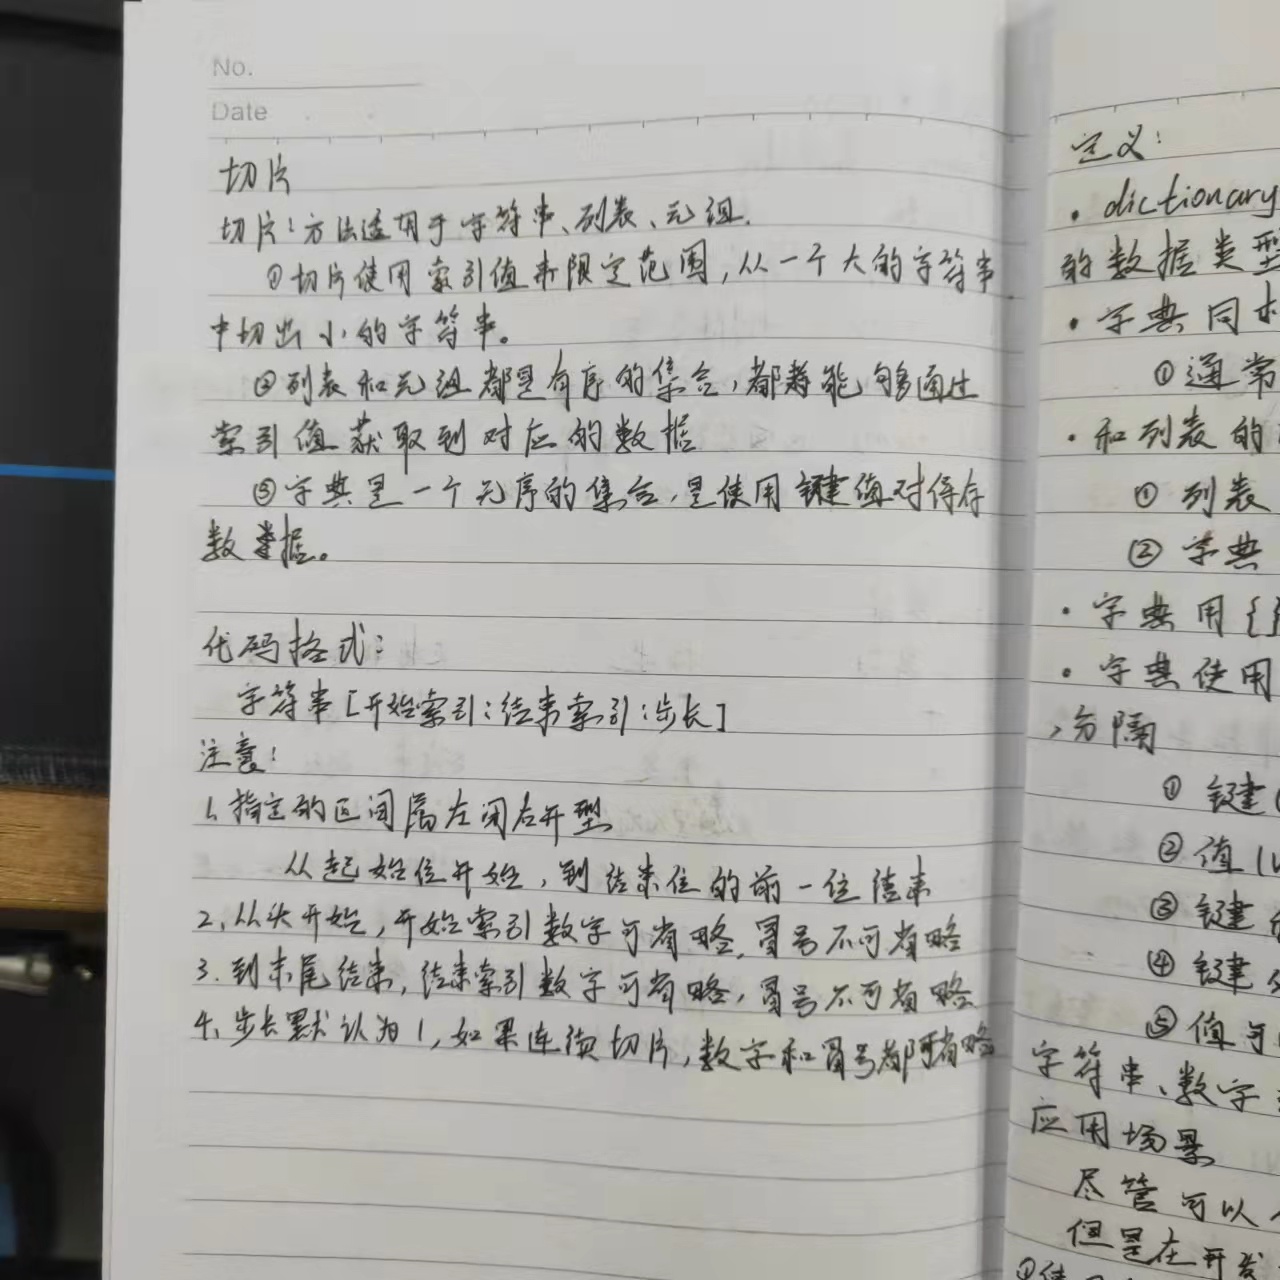 No.
Date
切片
切片:方法适用于字符串、列表、元组.
①切片使用索引值来限定范围,从一个大的字符串
中切出小的字符串。
②列表和元组都是有序的集合,都能够通过
索引值获取到对应的数据
③字典是一个无序的集合,是使用键值对保存
数据。
代码格式:
字符串[开始索引:结束索引:步长]
注意:
1.指定的区间属左闭右开型
从起始位开始,到结束位的前一位结束
2.从头开始,开始索引数字可省略,冒号不可省略
3.到末尾结束,结束索引数字可省略,冒号不可省略
4.步长默认为1,如果连续切片,数字和冒号都可省略
定义:
·dictionary
的数据类型
·字典同
①通常
·和列表的
①列表
②字典
·字典用{}
·字典使用
,分隔
①键(
②值(
③键
④键
⑤值可
字符串、数字
应用场景
尽管可以
但是在开发